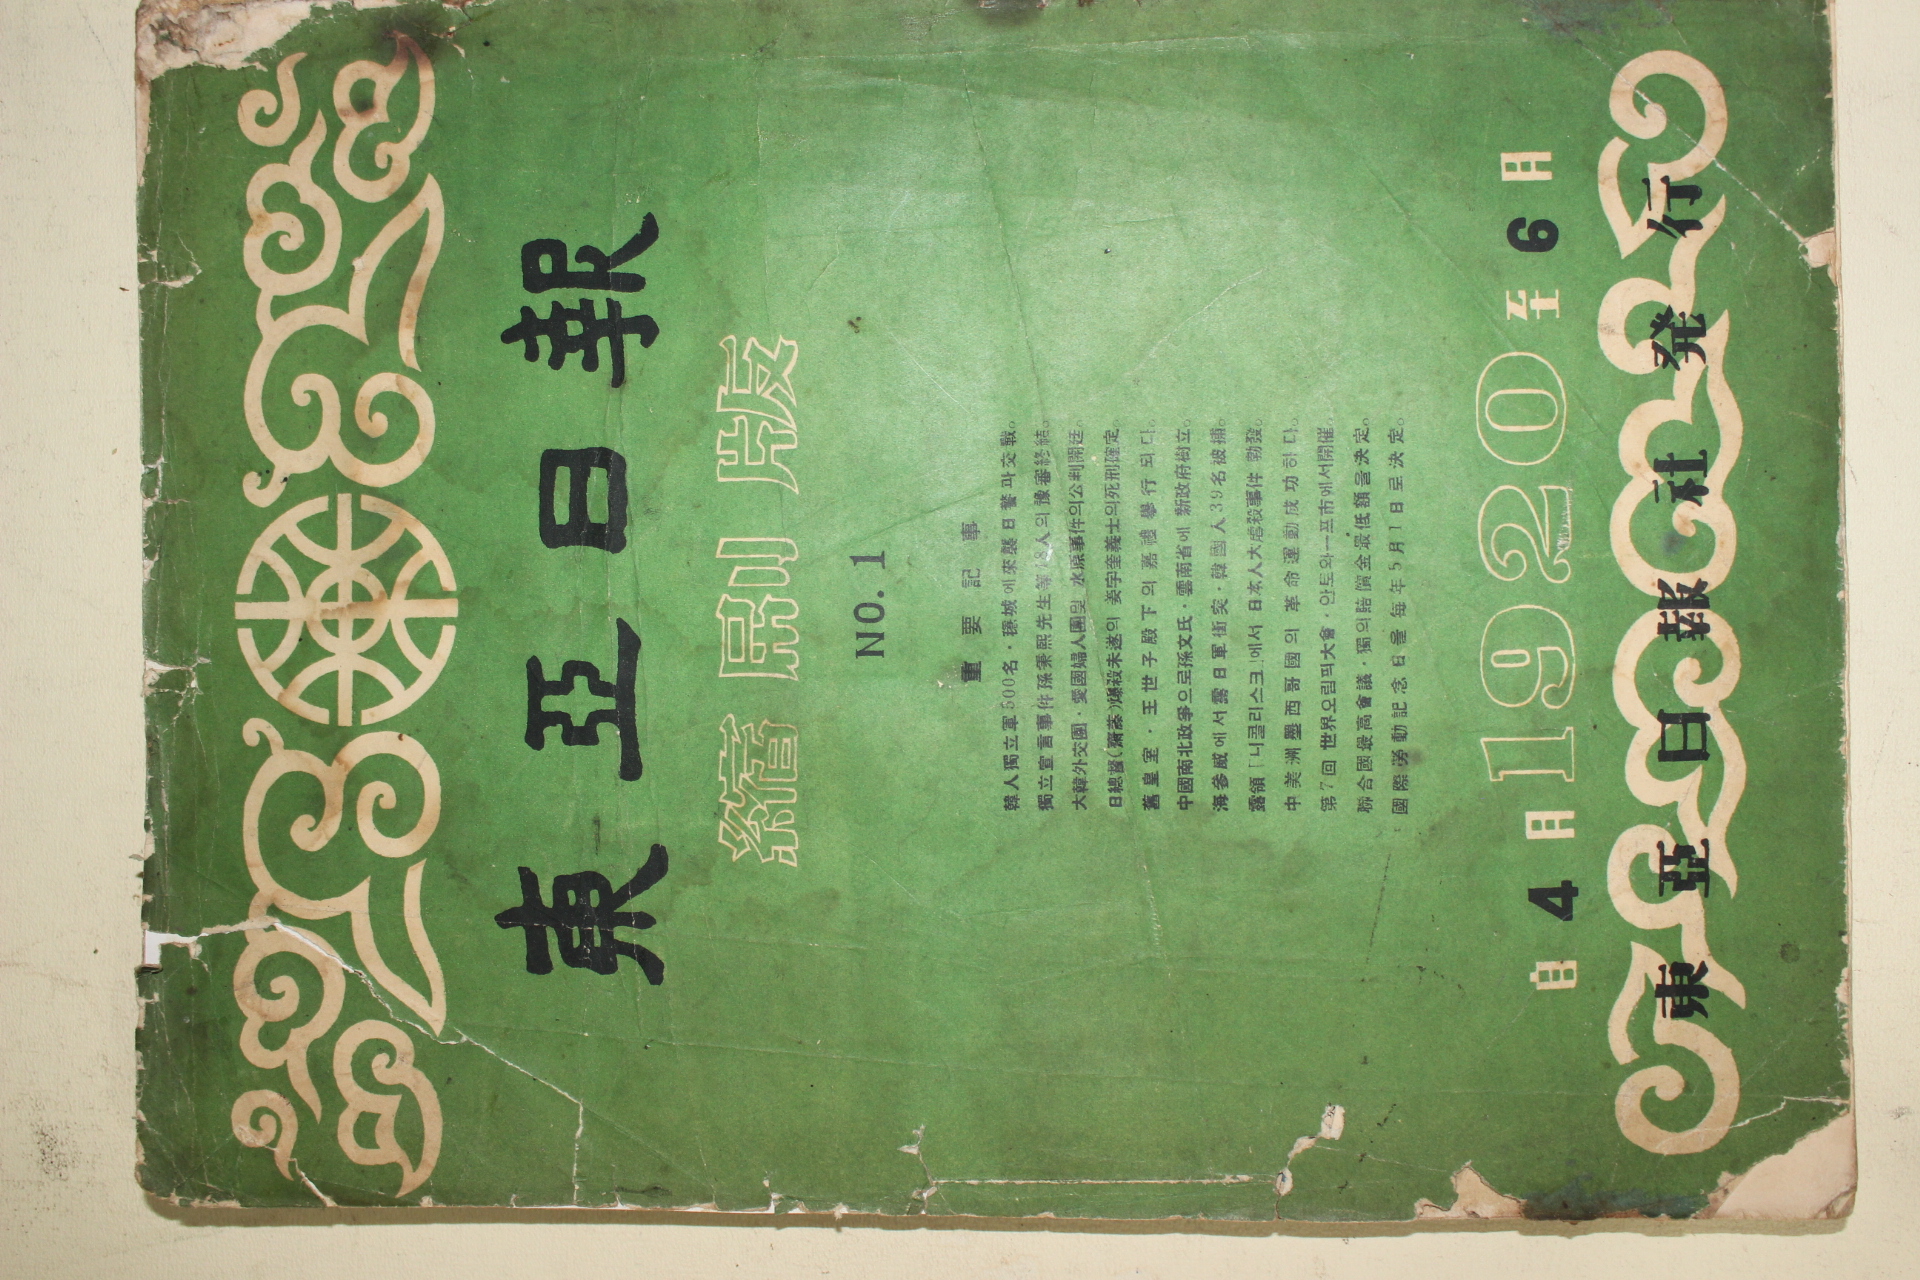 東亞日報
縮刷版
NO. 1
重要記事
韓人獨立軍500名·穩城에來襲日警과交戰。
獨立宣言事件孫秉熙先生等48人의豫審終結。
大韓外交團·愛國婦人團및水原事件의公判開廷。
日總督(齋藤)爆殺未遂의 姜宇奎義士의死刑確定。
舊皇室·王世子殿下의嘉禮擧行되다。
中國南北政爭으로孫文氏·雲南省에新政府樹立。
海參威에서露日軍衝突·韓國人39名被捕。
露領「니콜리스크」에서日本人大虐殺事件勃發。
中美洲墨西哥國의革命運動成功하다。
第7回 世界오림픽大會·안토와一프市에서開催。
聯合國最高會議·獨의賠償金最低額을決定。
國際勞動記念日을每年5月1日로決定。
自4月1920年6月
東亞日報社発行